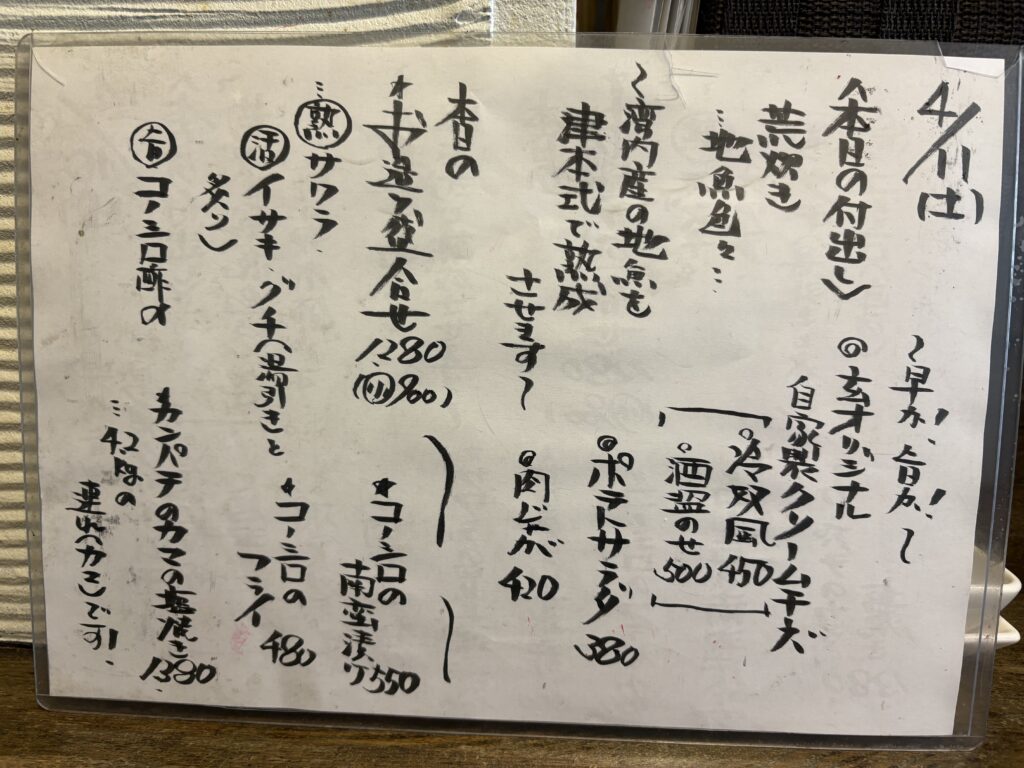 4/11(土)
〜早カ!、旨カ!〜
〈本日の付出し〉
荒炊き
…地魚色々…
〜湾内産の地魚を
津本式で熟成
させます〜
◎玄オリジナル
自家製クリームチーズ
。冷奴風 450
。酒盗のせ 500
◎ポテトサラダ 380
◎肉じゃが 420
本日の
*お造り盛合せ 1280
…熟サワラ
活イサキ・グチ(湯引きと
炙り)
旨コノシロ酢〆
*コノシロの
南蛮漬け 550
*コノシロの
フライ 480
*カンパチのカマの塩焼き 1380
…4.2kgの
連れ(カマ)です!